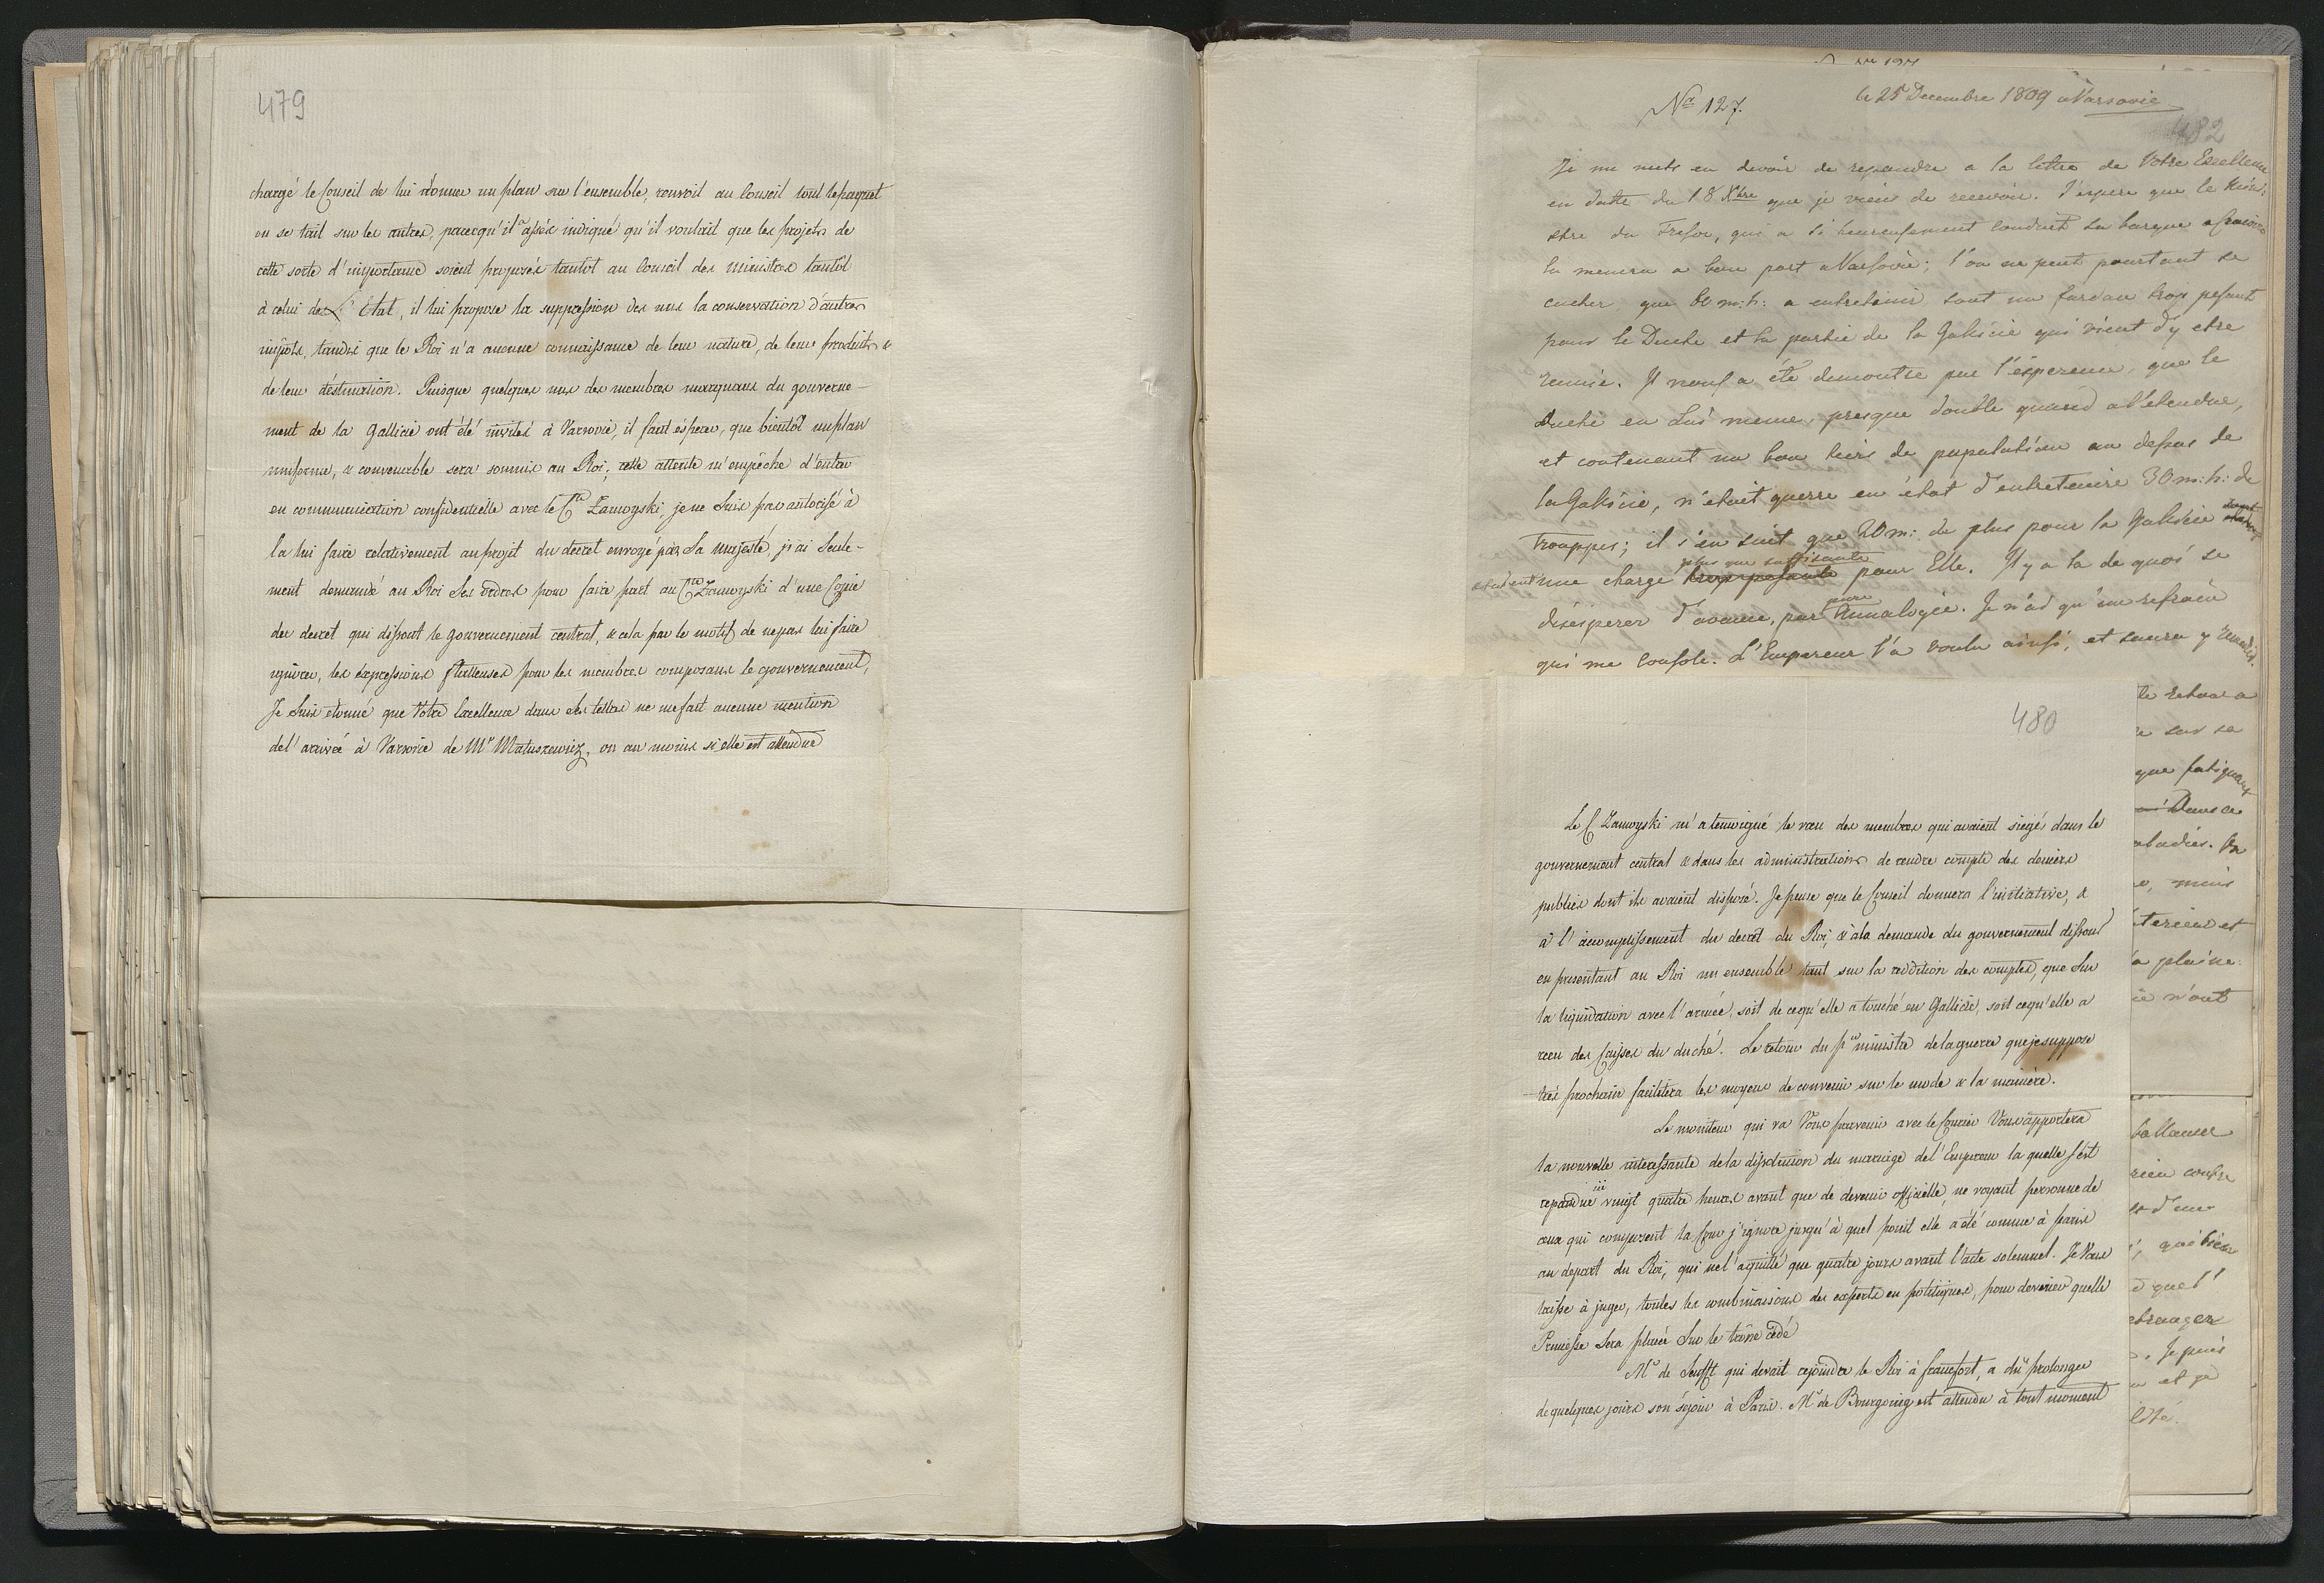 479
chargé le Conseil de lui donner un plan sur l'ensemble, renvoit au Conseil tout le paquet
on se tait sur les autres, parcequ'il a assés indiqué qu'il voulait que les projets de
cette sorte d'importance soient proposés tantot au Conseil des Ministres tantôt
à celui de l'Etat, il lui propose la suppression des uns la conservation d'autres
impôts, tandis que le Roi n'a aucune connaissance de leur nature, de leurs produits &
de leur destination. Puisque quelques uns des membres marquans du gouverne-
ment de la Gallicie ont été invités à Varsovie, il faut espérer, que bientôt un plan
uniforme, & convenable sera soumis au Roi; cette attente m'empêche d'entrer
en communication confidentielle avec le Cte Zamoyski, je ne suis pas autorisé à
la lui faire relativement au projet du decret envoyé par Sa Majesté, j'ai seule-
ment demandé au Roi Ses ordres pour faire part au Cte Zamoyski d'une Copie
du decret qui dissout le gouvernement central, & cela par le motif de ne pas lui faire
ignorer, les expressions flatteuses pour les membres composans le gouvernement,
Je suis etonné que Votre Excellence dans Ses lettres ne me fait aucune mention
de l'arrivée à Varsovie de Mr Matuszewicz, ou au moins si elle est attendue
Nr 127.
le 25 Decembre 1809 a Varsovie
482
Je me mets en devoir de repondre a la lettre de Votre Excellence
en datte du 18 Xbre que je viens de recevoir. J'espere que le Mini:
stre du Tresor, qui a si heureusement conduit sa barque a Cracovie
la menera a bon port a Varsovie; l'on ne peut pourtant se
cacher que 60 m: h: a entretenir sont un fardeau trop pesant
pour le Duché et la partie de la Galicie qui vient d'y etre
reunie. Il nous a été demontré par l'experience, que le
Duché en Lui meme, presque double quand a l'etendue,
et contenant un bon tiers de population au dessus de
la Galicie, n'etoit guerre en état d'entretenire 30 m: h: de
trouppes; il s'en suit que 20 m: de plus pour la Galicie
une charge plus que suffisante trop pesante pour Elle. Il y a la de quoi se
désésperer d'avance, par Annalogie. Je n'ai qu'un refrain
qui me console. L'Empereur l'a voulu ainsi, et saura y remedier.
480
Le C Zamoyski m'a temoigné le vœu des membres qui avaient siegés dans le
gouvernement central & dans les administrations de rendre compte des deniers
publics dont ils avaient disposé. Je pense que le Conseil donnera l'initiative, &
à l'accomplissement du decret du Roi, & à la demande du gouvernement dissous
en presentant au Roi un ensemble tant sur la reddition des comptes, que sur
la liquidation avec l'armée, soit de cequ'elle a touché en Gallicie, soit cequ'elle a
recu des Caisses du duché. Le retour du pce ministre de la guerre que je suppose
très prochain facilitera les moyens de convenir sur le mode & la manière.
Le moniteur qui va Vous parvenir avec le Courier Vous apportera
la nouvelle interessante de la dissolution du mariage de l'Empereur la quelle s'est
repandue ici vingt quatre heures avant que de devenir officielle, ne voyant personne de
ceux qui composent la Cour j'ignore jusqu'à quel point elle a été connue à Paris
au depart du Roi, qui ne l'a quitté que quatre jours avant l'acte solemnel. Je Vous
laisse à juger, toutes les combinaisons des experts en politiques, pour deviner quelle
Princesse sera placée sur le trône cédé
Mr de Senfft qui devait rejoindre le Roi à francfort, a dû prolonger
de quelques jours son séjour à Paris. Mr de Bourgoing est attendu à tout moment
que fatiguant
mais
terieur et
a pleine
ballance
rien contre
qui bien
etranger
Je puis
et je